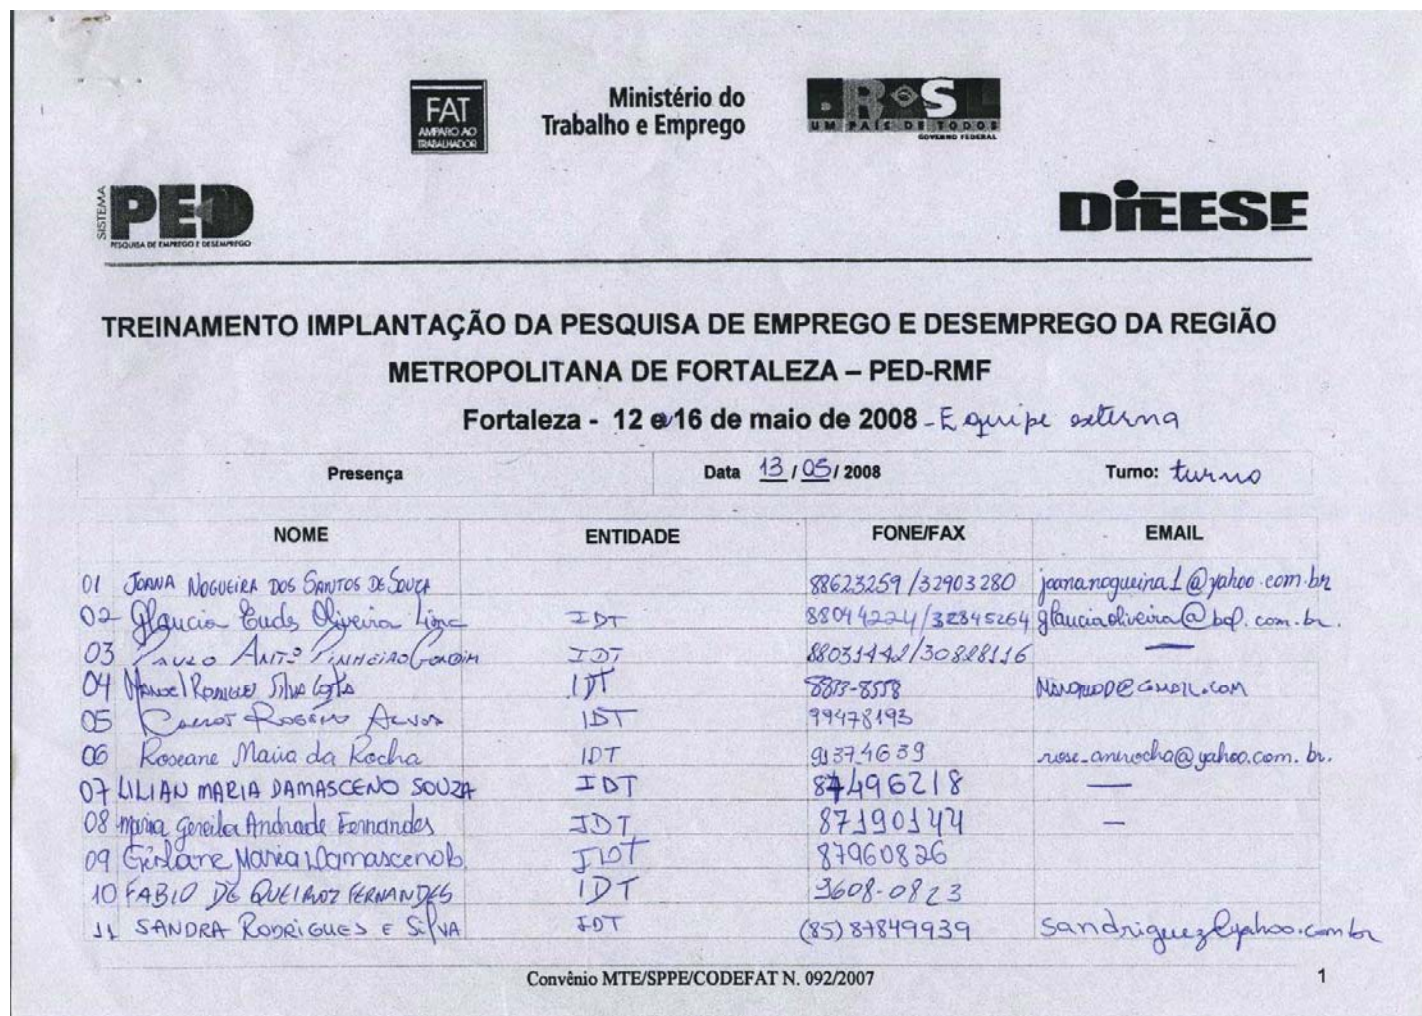 FAT
AMPARO AO
TRABALHADOR
Ministério do
Trabalho e Emprego
BRASIL
UM PAÍS DE TODOS
GOVERNO FEDERAL
SISTEMA
PED
PESQUISA DE EMPREGO E DESEMPREGO
DIEESE
TREINAMENTO IMPLANTAÇÃO DA PESQUISA DE EMPREGO E DESEMPREGO DA REGIÃO
METROPOLITANA DE FORTALEZA – PED-RMF
Fortaleza - 12 a 16 de maio de 2008 - Equipe externa
Presença Data 13 / 05 / 2008 Turno: turno
NOME ENTIDADE FONE/FAX EMAIL
01 JOANA NOGUEIRA DOS SANTOS DE SOUZA 88623259 / 32903280 joananogueira1@yahoo.com.br
02 - Glaucia Eudes Oliveira Lima IDT 88094224/32845264 glauciaoliveira@bol.com.br.
03 PAULO ANTº PINHEIRO GONDIM IDT 88031442/30828116 —
04 Manoel Rodrigues Silva Costa IDT 8813-8558
05 Rogério Alves IDT 99478193
06 Roseane Maria da Rocha IDT 91374639 rose_anerocha@yahoo.com.br.
07 LILIAN MARIA DAMASCENO SOUZA IDT 84496218 —
08 - Maria Gereila Andrade Fernandes IDT 87190144 —
09 Gislane Maria Damasceno B. IDT 87960826
10 FABIO DE QUEIROZ FERNANDES IDT 9608-0823
11 SANDRA RODRIGUES E SILVA IDT (85) 87849939 sandriguez@yahoo.com.br
Convênio MTE/SPPE/CODEFAT N. 092/2007
1